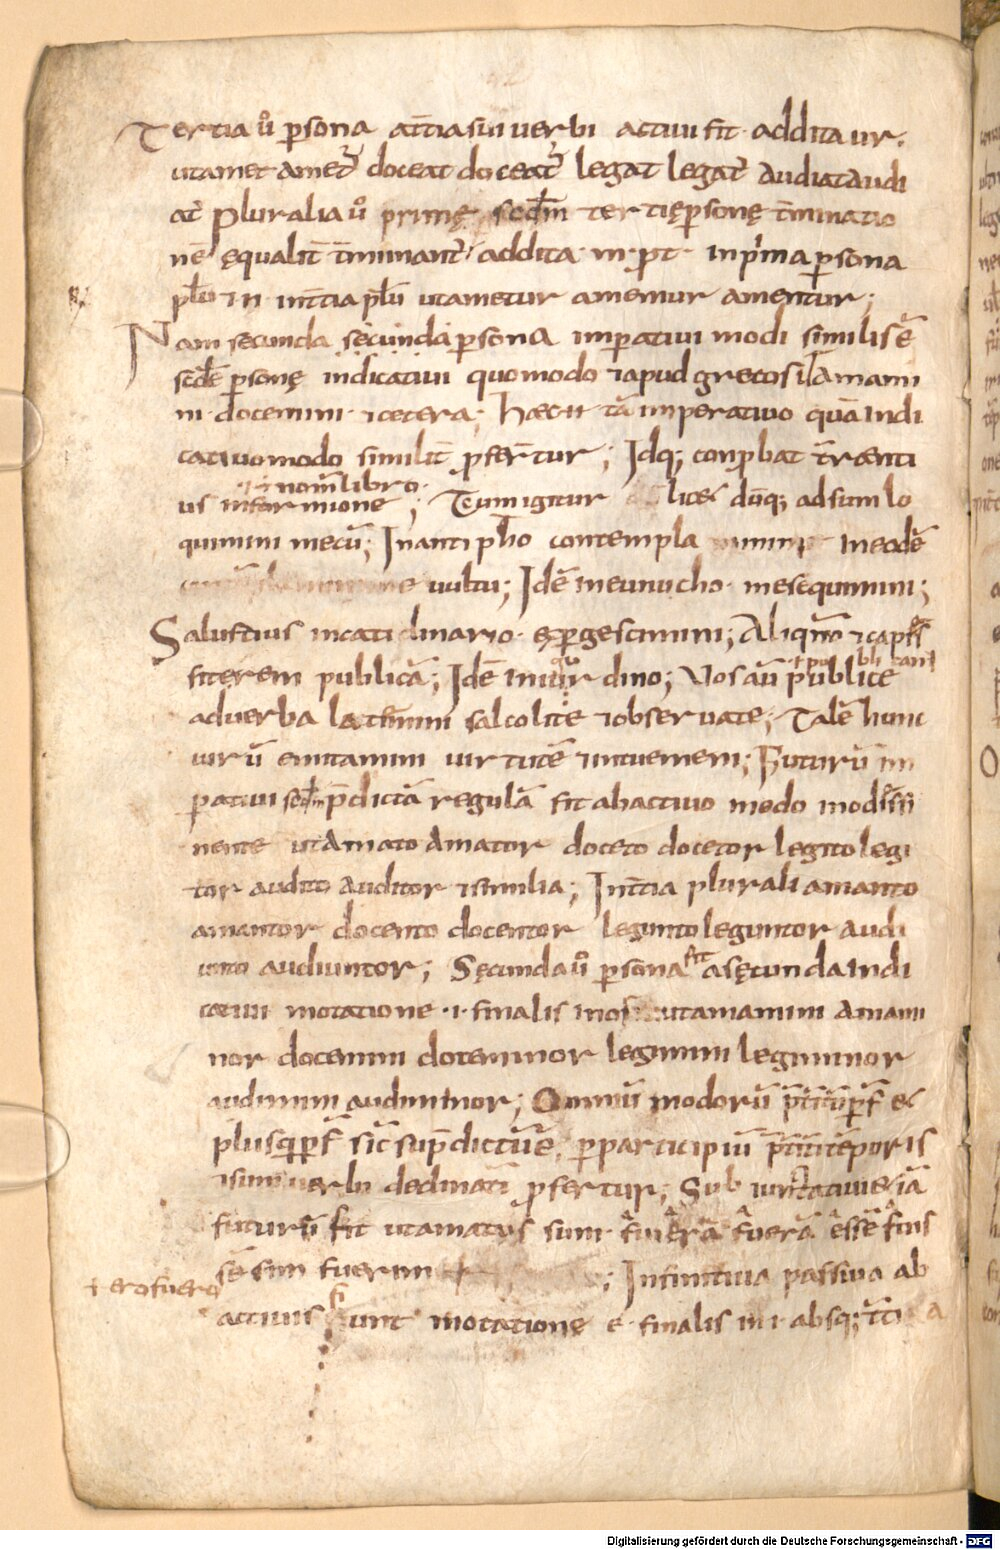 Tertia ů p̱sona at̄tia sui verbi actiui fit · addita ur.
ut amet amet᷑ doceat doceat᷑ legat legat᷑ audiat audi
at᷑ pluralia ů primę scďm tertię p̱sonę t̄minatio
nē ęqualit̄ t̄minant᷑ addita · m · p̱t · in p'ma p̱sona
płu & n · in t̄tia płu ut ametur amemur amentur ;
Nam secunda secunda p̱sona imp̱atiui modi similis ē
scďe p̱sonę indicatiui quomodo & apud grecos · Amami
ni · docemini · & cetera ; tā imperatiuo quā indi
catiuo modo similit̄ p̱fer̄tur ; Idq; conp̱bat t̄renti
· i · in nom̄ libro ·
us in formione ; Tu migitur dūq; adsum lo
quimini mecū ; In antipho contempla in eodē
vultu ; Idē in eunucho · me sequimini ;
Salustius in catidinario · exp̱gescimini ; Aliqn̄o & cap̱
fite rem publicā ; Idē in iugur dino ; Vos aū publice
adverba latinini salcolite & obseruate ; Talē hunc
uirū emitamini uirtutē & intuemeni ; Futurū im
p̱atiui scďm p̄dictā regulā fit ab actiuo modo modi
nente ut amato amator doceto docetor legito legi
tor audito auditor & similia ; In t̄tia plurali amanto
amantor docento docentor legunto leguntor audi
unto audiuntor ; Sęcunda ů p̱sona fit a sęcunda indi
catiui motatione · i · finalis in or ut amamini amami
nor docemini doceminor legimini legiminor
audimini audiminor ; Omniū modorū p̱f̄ &
plusq̱p̱f̄ sic̄ sup̄dictū ē, p̱ participiū p̄t̄iti tēporis
& sum verbi declinati p̱fertur ; Sub iunctatiui & iā
futurū fit ut amatus sum · fui erā fuerā esse fuis
sē sim fuerim + ; Infinitiua passiua ab
+ ero fuero
actiuis fiunt motatione e · finalis in i · absq; t̄ti a
Digitalisierung gefördert durch die Deutsche Forschungsgemeinschaft - DFG